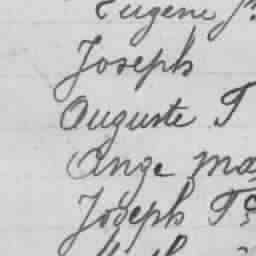 Eugene J
Joseph
Auguste T
Ange Ma
Joseph Fç